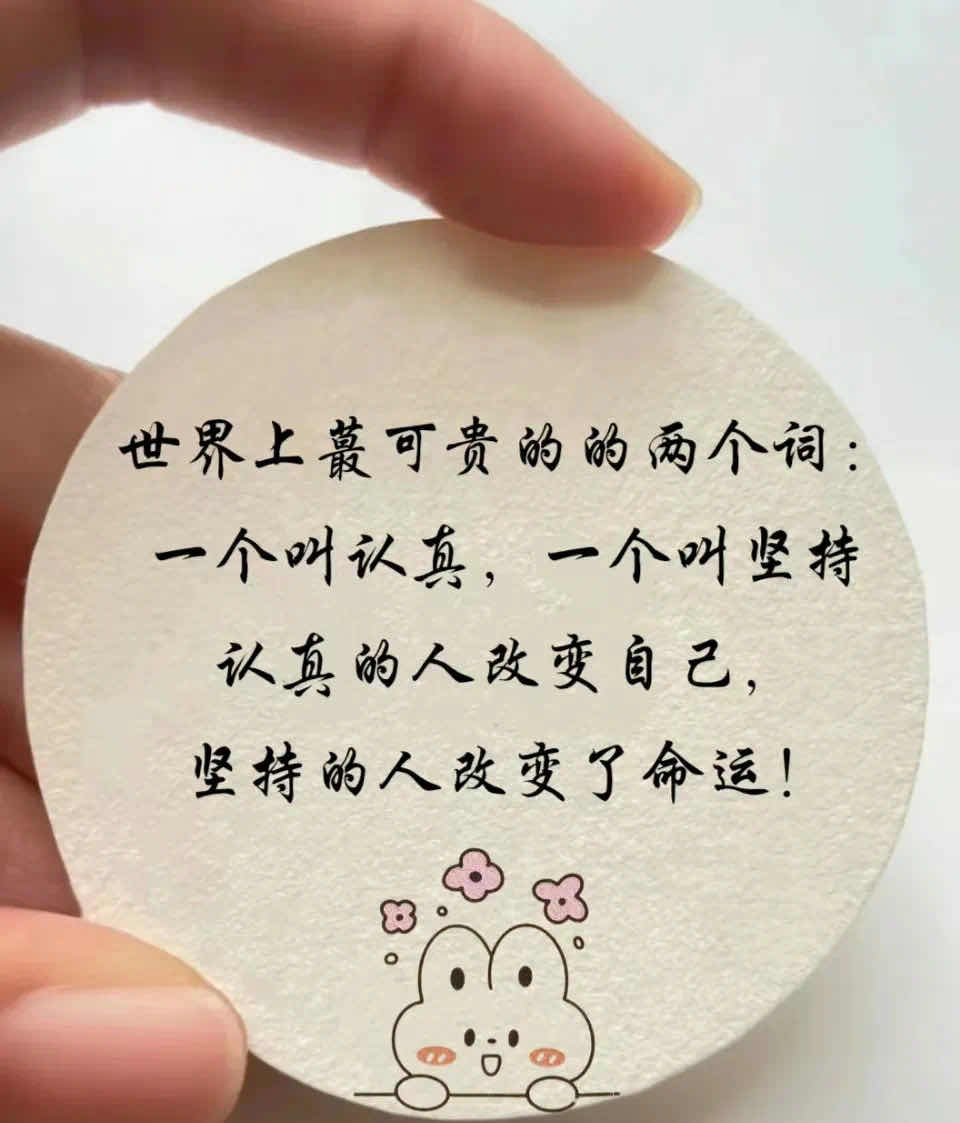 世界上蕞可贵的的两个词：
一个叫认真，一个叫坚持
认真的人改变自己，
坚持的人改变了命运！